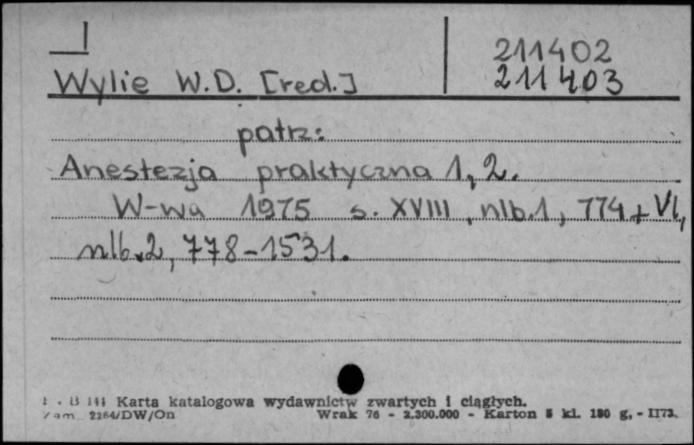 211402
Wylie W.D. [red.] 211403
patrz:
Anestezja praktyczna 1, 2.
W-wa 1975 s. XVIII, nlb.1, 774 + VI,
nlb.2, 778-1531.
Karta katalogowa wydawnictw zwartych i ciągłych.
2264/DW/On Wrak 76 - 2.300.000 - Karton kl. 180 g. - II73.